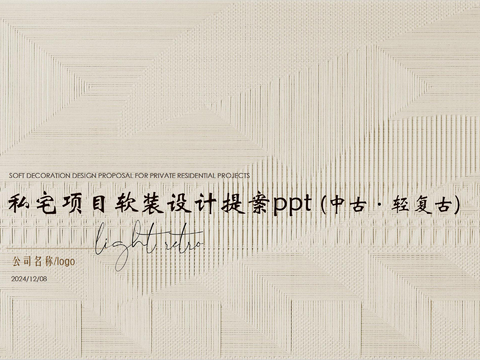 SOFT DECORATION DESIGN PROPOSAL FOR PRIVATE RESIDENTIAL PROJECTS
私宅项目软装设计提案ppt (中古 · 轻复古)
light retro
公司名称/logo
2024/12/08